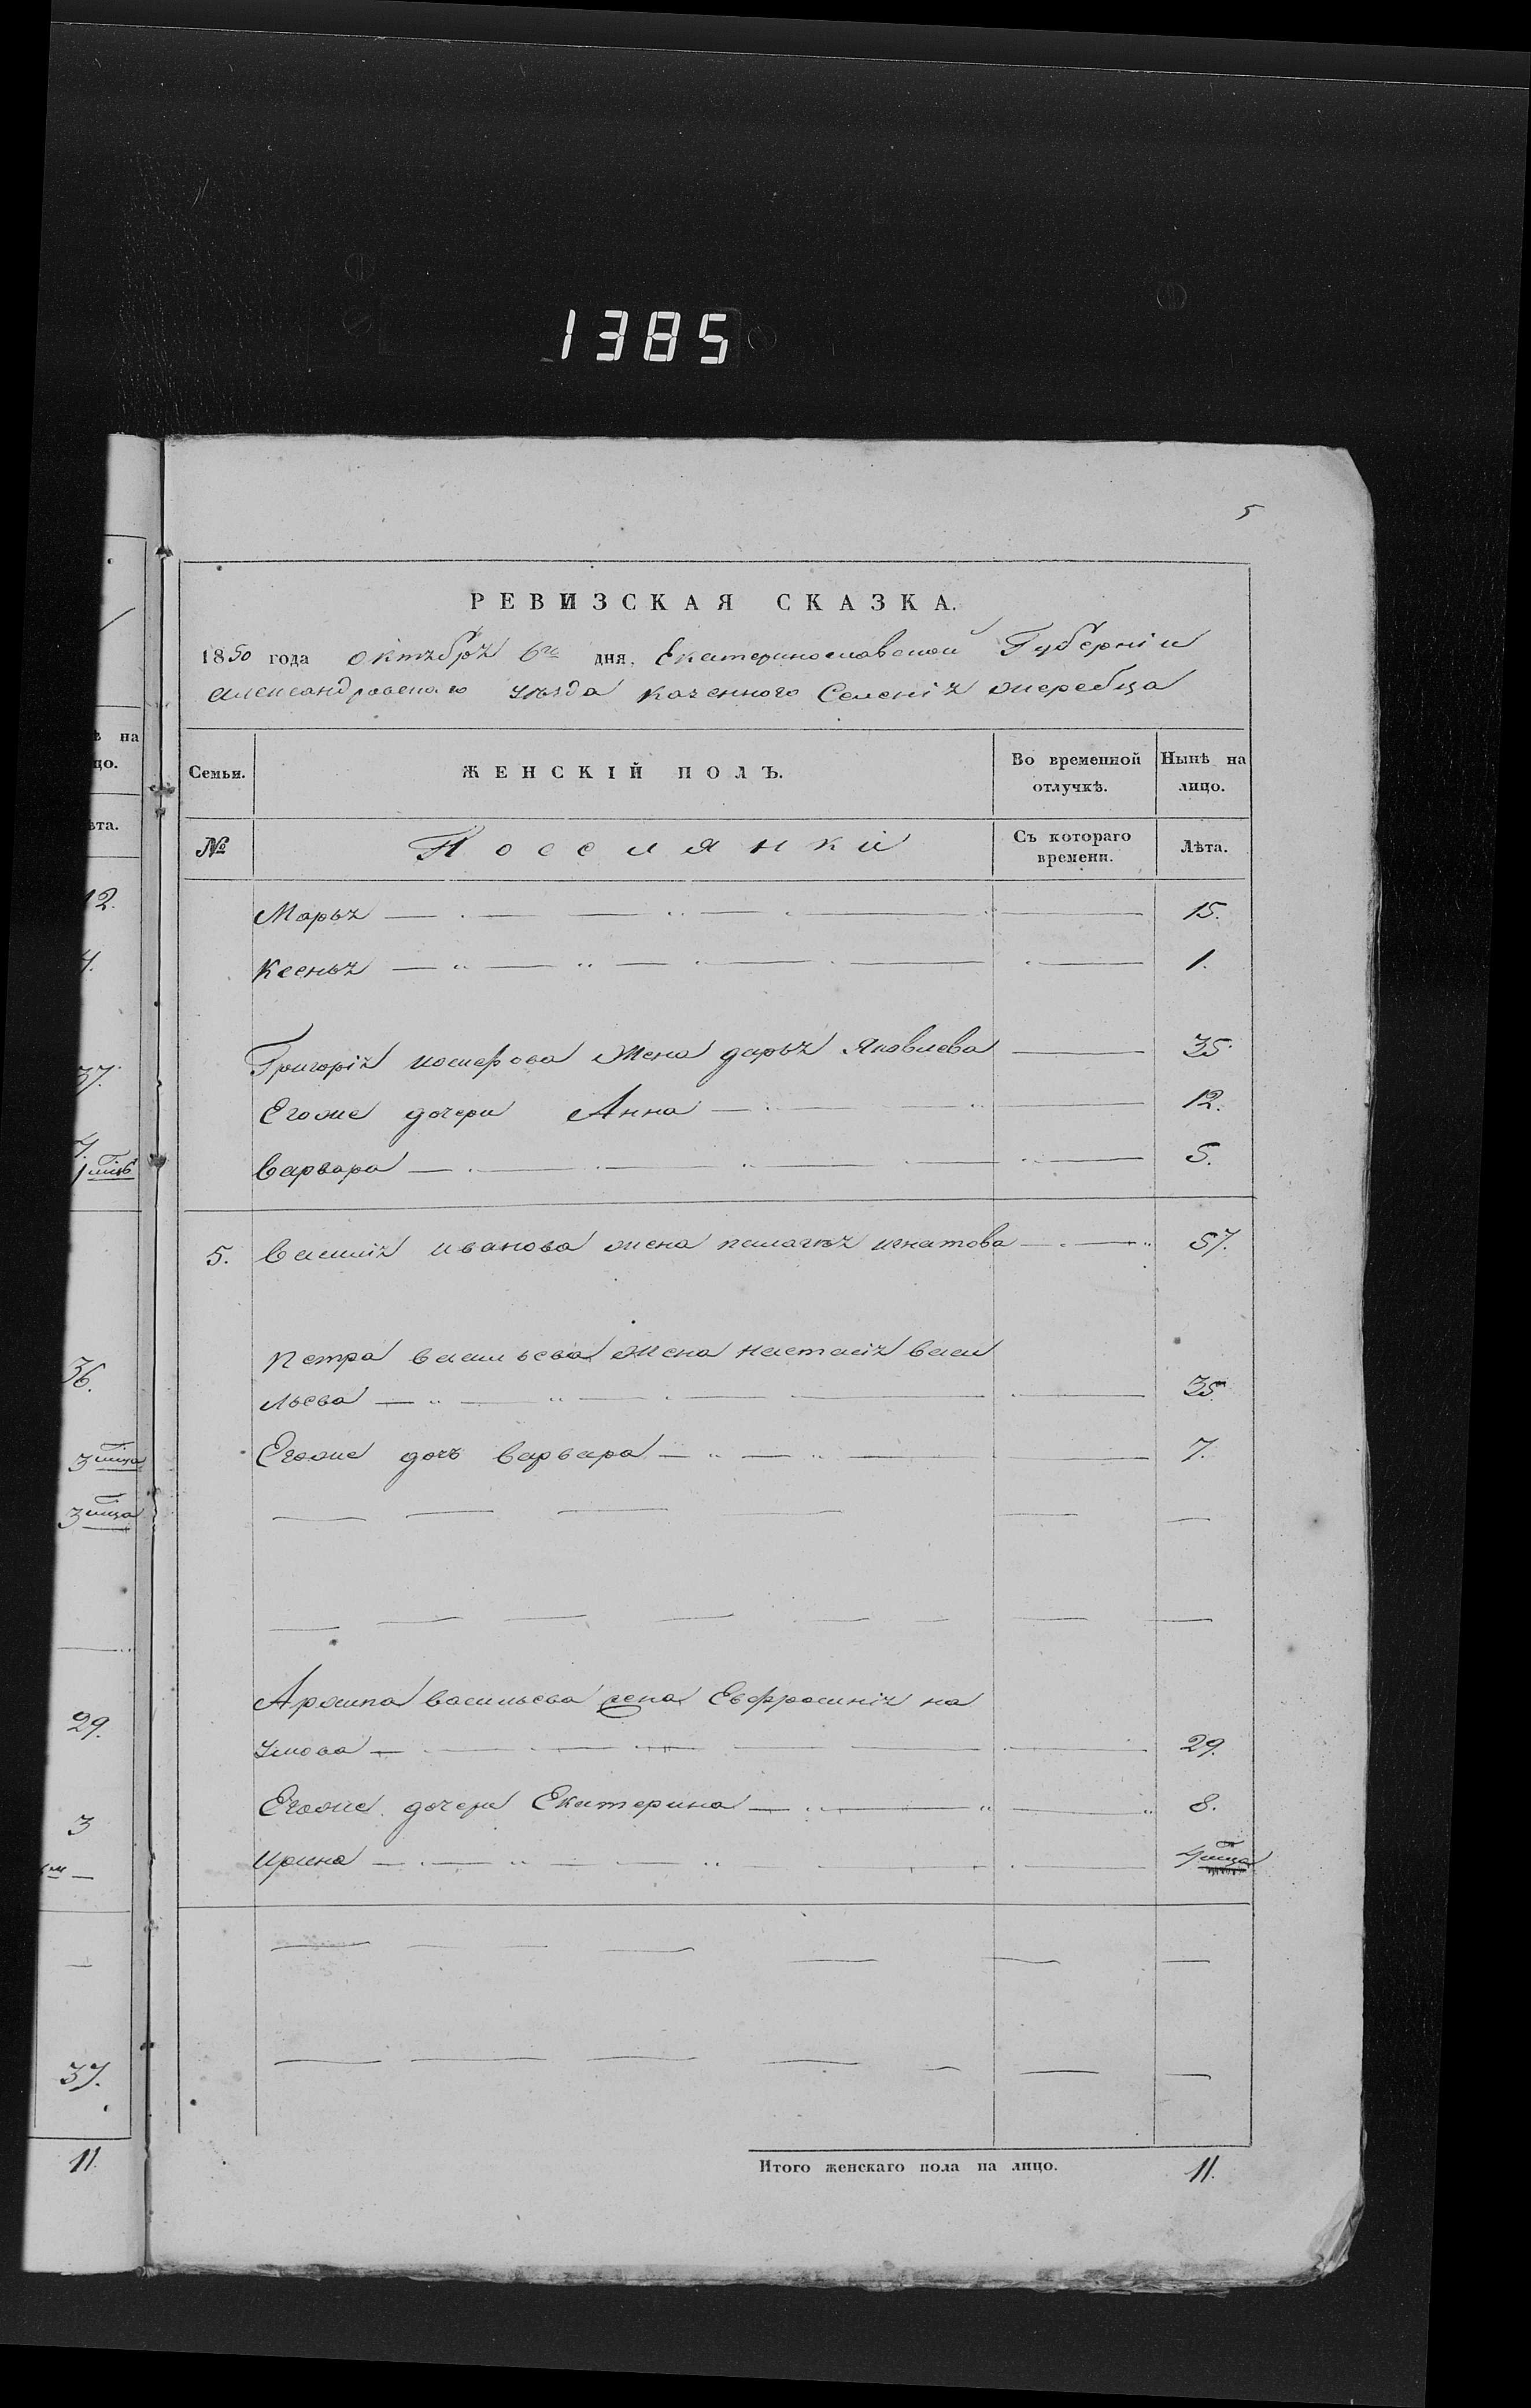 1385
5
РЕВИЗСКАЯ СКАЗКА.
1850 года октября 6го дня, Екатеринославской Губерніи
александровскаго уезда казенного Селенія жеребца
Семьи. ЖЕНСКІЙ ПОЛЪ. Во временной отлучкѣ. Нынѣ на лицо.
№ Поселянки Съ котораго времени. Лѣта.
Марья 15.
Ксенья 1.
Григорія иосифова жена дарья Яковлева 35
Егоже дочери Анна 12.
Варвара 5.
5. Василія иванова жена пелагея игнатова 57.
Петра васильева жена настасія васи
льева 35
Егоже дочь варвара 7.
Архипа васильева жена Евфросинія на
умова 29.
Егоже дочери Екатерина 8.
Ирина 4 мца
Итого женскаго пола на лицо. 11.
ѣ на
цо.
ѣта.
12.
4.
37.
36.
3 мца
3 мца
29.
3
37.
11.